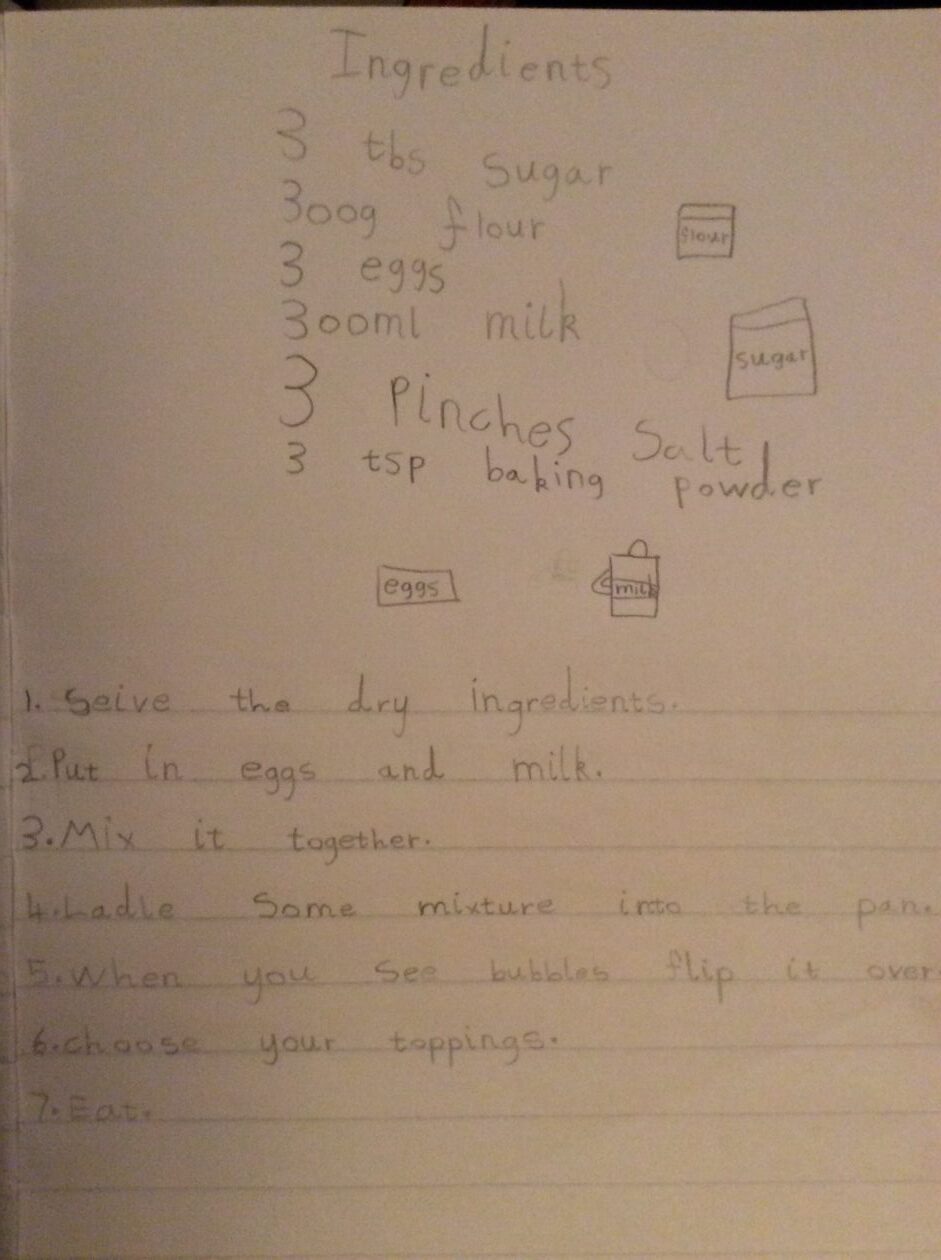 Ingredients
3 tbs sugar
300g flour
flour
3 eggs
300ml milk
sugar
3 Pinches Salt
3 tsp baking powder
eggs
milk
1. Seive the dry ingredients.
2. Put in eggs and milk.
3. Mix it together.
4. Ladle Some mixture into the pan.
5. When you See bubbles flip it over
6. choose your toppings.
7. Eat.